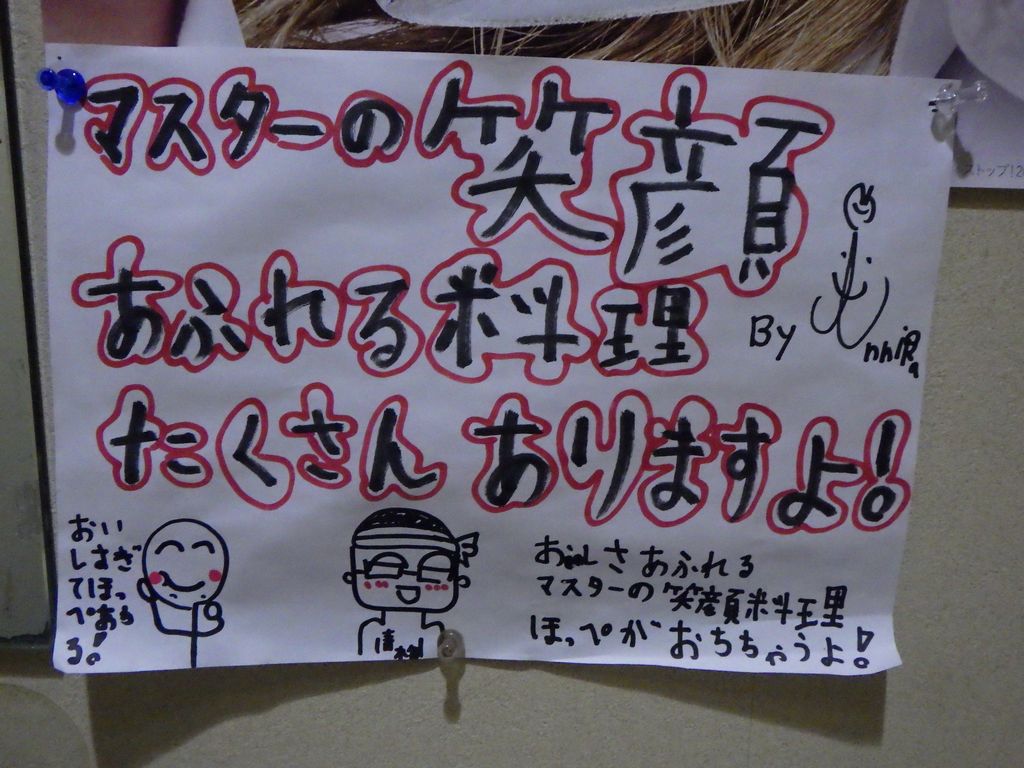 マスターの笑顔
あふれる料理
By
たくさん あります
よ!
おい
しさぎ
てほっ
ぺあち
る!
おいしさあふれる
マスターの笑顔料理
ほっぺが おちちゃうよ!
ストップ!2